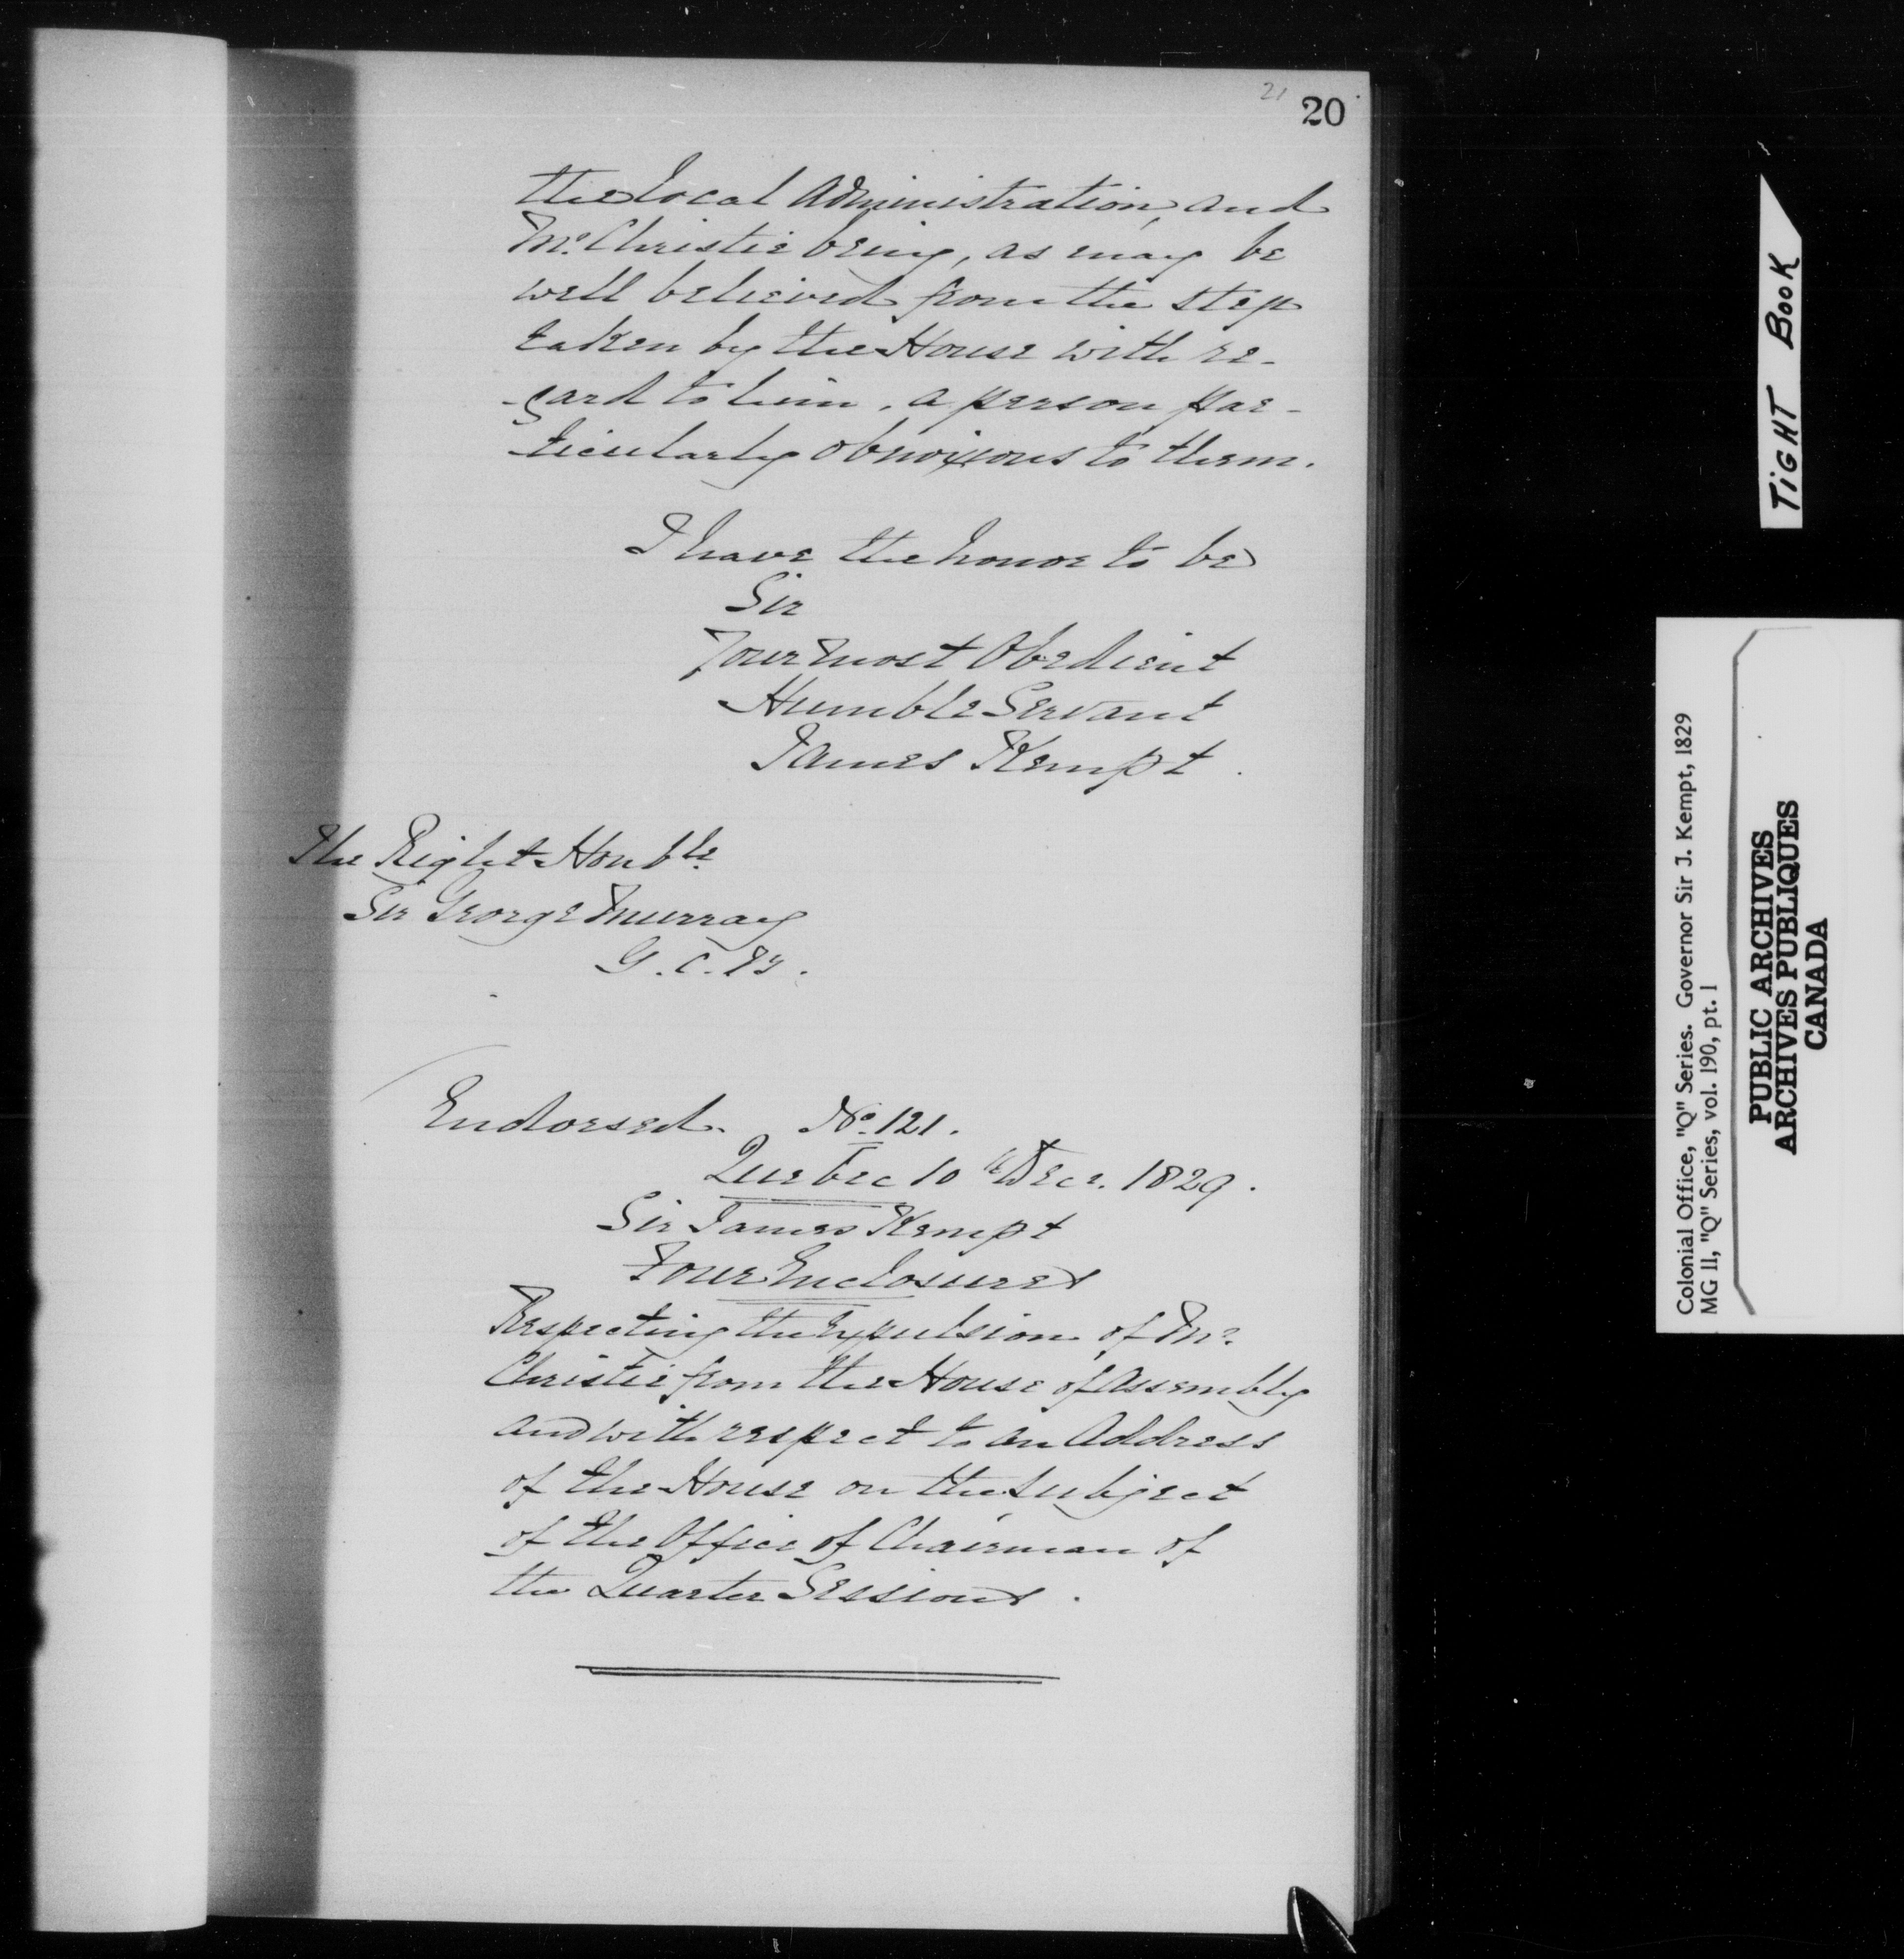 21 20
the Local Administration, and
Mr. Christie being, as may be
well believed from the step
taken by the House with re-
-gard to him, a person par-
-ticularly obnoxious to them.
I have the honor to be
Sir
Your most Obedient
Humble Servant
James Kempt.
The Right Honble.
Sir George Murray
G.C.B.
Endorsed. No. 121.
Quebec 10th Decr. 1829.
Sir James Kempt
Four Enclosures
Respecting the Expulsion of Mr.
Christie from the House of Assembly
and with respect to an Address
of the House on the subject
of the Office of Chairman of
the Quarter Sessions.
TiGHT BooK
Colonial Office, "Q" Series. Governor Sir J. Kempt, 1829
MG 11, "Q" Series, vol. 190, pt. 1
PUBLIC ARCHIVES
ARCHIVES PUBLIQUES
CANADA